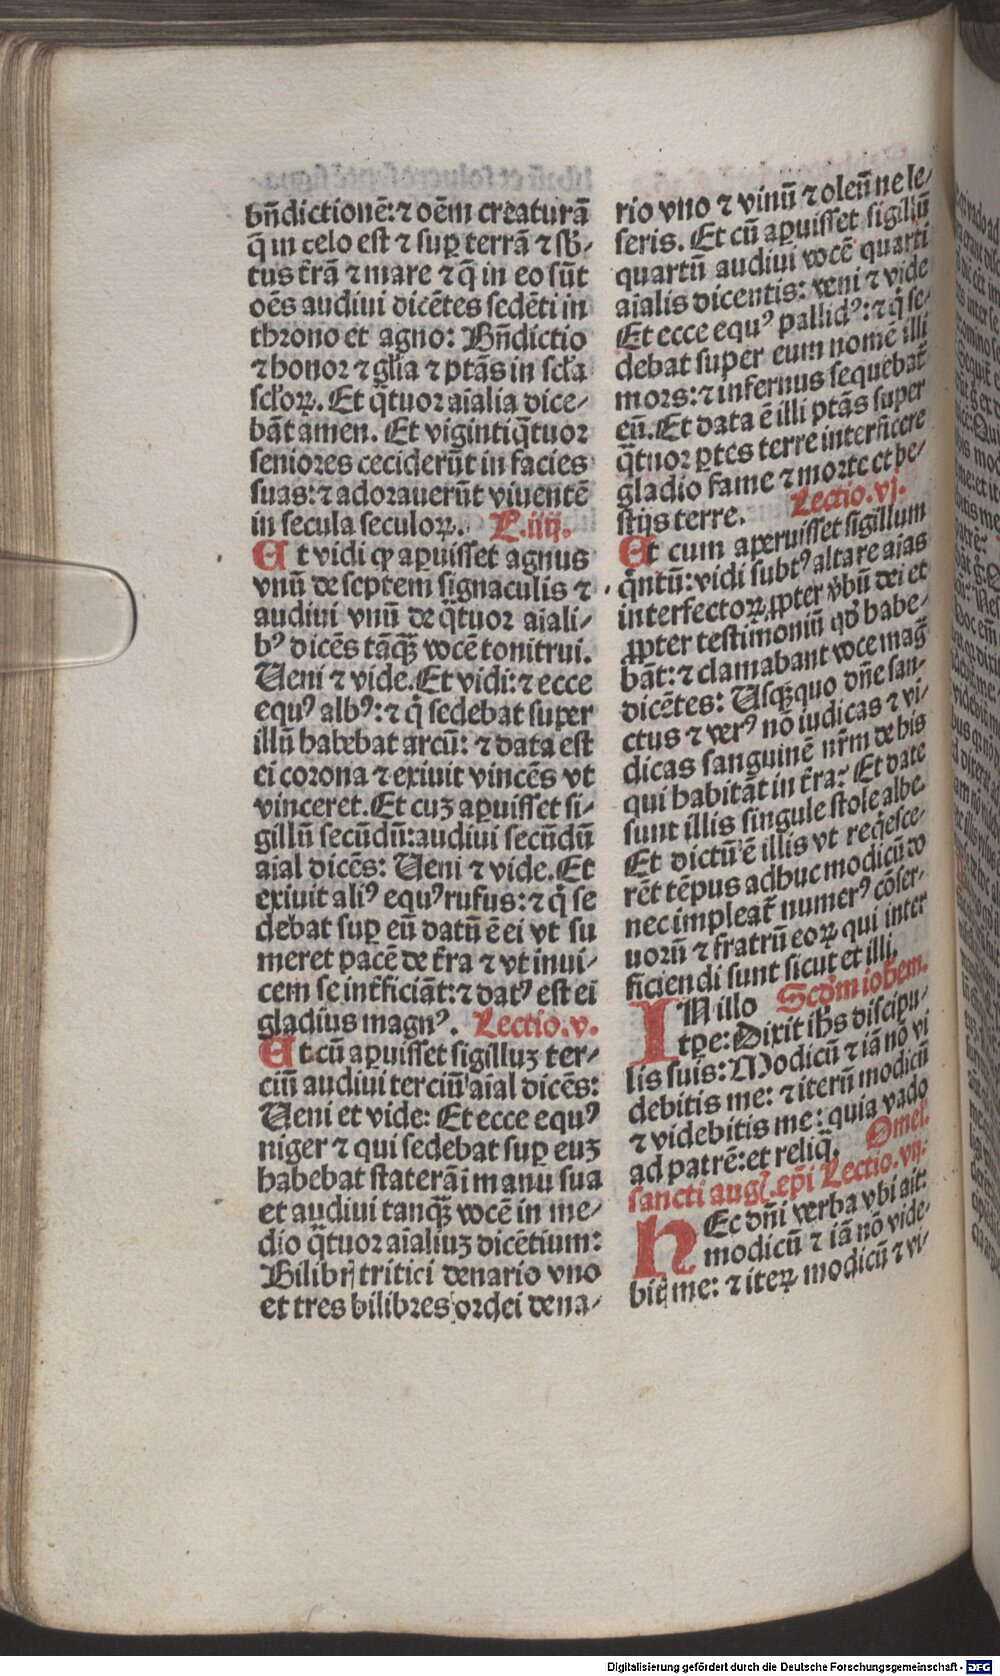 bñdictionē: ⁊ oēm creaturā
q̄ in celo est ⁊ suꝑ terrā ⁊ sb̄-
tus t̄rā ⁊ mare ⁊ q̄ in eo sūt
oēs audiui dicētes sedēti in
throno et agno: Bñdictio
⁊ honor ⁊ gl̄ia ⁊ ptās in scl̄a
scl̄oꝝ. Et q̄tuor aīalia dice-
bāt amen. Et vigintiq̄tuor
seniores ceciderūt in facies
suas: ⁊ adorauerūt viuentē
in secula seculoꝝ. L. iiij.
Et vidi ꝙ aꝑuisset agnus
vnū de septem signaculis ⁊
audiui vnū de q̄tuor aīali-
bꝰ dicēs tāqꝫ vocē tonitrui.
Ueni ⁊ vide. Et vidi: ⁊ ecce
equꝰ albꝰ: ⁊ q̇ sedebat super
illū habebat arcū: ⁊ data est
ei corona ⁊ exiuit vincēs vt
vinceret. Et cuꝫ aꝑuisset si-
gillū secūdū: audiui secūdū
aīal dicēs: Ueni ⁊ vide. Et
exiuit aliꝰ equꝰ rufus: ⁊ q̇ se
debat suꝑ eū datū ē ei vt su
meret pacē de t̄ra ⁊ vt inui-
cem se int̄ficiāt: ⁊ datꝰ est ei
gladius magnꝰ. Lectio. v.
Et cū aꝑuisset sigilluꝫ ter-
ciū audiui terciū aīal dicēs:
Ueni et vide: Et ecce equꝰ
niger ⁊ qui sedebat suꝑ euꝫ
habebat staterā i manu sua
et audiui tanqꝫ vocē in me-
dio q̄tuor aīaliuꝫ dicētium:
Bilibrꝭ tritici denario vno
et tres bilibres ordei dena-
rio vno ⁊ vinū ⁊ oleū ne le-
seris. Et cū aꝑuisset sigillū
quartū audiui vocē quarti
aīalis dicentis: veni ⁊ vide
Et ecce equꝰ pallidꝰ: ⁊ q̇ se-
debat super eum nomē illi
mors: ⁊ infernus sequebat̄
eū. Et data ē illi ptās super
q̄tuor ꝑtes terre interficere
gladio fame ⁊ morte et be-
stijs terre. Lectio. vj.
Et cum aperuisset sigillum
q̇ntū: vidi subtꝰ altare aīas
interfectoꝝ ꝓpter v̄bū dei et
ꝓpter testimoniū qd̄ habe-
bāt: ⁊ clamabant voce maḡ
dicētes: Usqꝫquo dn̄e san-
ctus ⁊ verꝰ nō iudicas ⁊ vi-
dicas sanguinē nr̄m de his
qui habitāt in t̄ra? Et date
sunt illis singule stole albe.
Et dictū ē illis vt req̇esce-
rēt tēpus adhuc modicū do
nec impleāt numerꝰ cōser-
uorū ⁊ fratrū eoꝝ qui inter
ficiendi sunt sicut et illi.
IN illo Scd̄m ioh̄em.
tp̄e: Dixit ih̄s discipu-
lis suis: Modicū ⁊ iā nō vi
debitis me: ⁊ iterū modicū
⁊ videbitis me: quia vado
ad patrē: et reliq̄. Omel̄.
sancti augꝭ. ep̄i Lectio. vij.
HEc dn̄i verba vbi ait:
modicū ⁊ iā nō vide-
bitꝭ me: ⁊ iteꝝ modicū ⁊ vi-
Digitalisierung gefördert durch die Deutsche Forschungsgemeinschaft - DFG